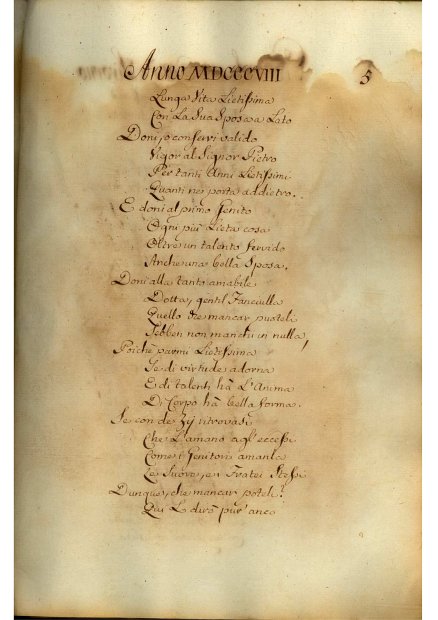 Anno MDCCCVIII
5
Lunga Vita Lietissima
Con La Sua Sposa a Lato
Doni, o conservi valido
Vigor al Signor Pietro
Per tanti Anni Lietissimi
Quanti nei porta addietro.
E doni al primo Genito
Ogni più Lieta cosa
Oltre un talento fervido
Anche una bella Sposa.
Doni alla tanto amabile
Dotta, gentil Fanciulla
Quello che mancar puoteli
Sebben non manchi in nulla!
Poichè parmi Lietissima
Se di virtude adorna
E di talenti hà L'Anima
Di Corpo hà bella forma.
Se con de Zij ritrovasi
Che L'amano agl'eccessi
Come i Genitori amanla
Le Suore, en Fratei Stessi
Dunque, che mancar poteli?
Qui L dirà pur anco